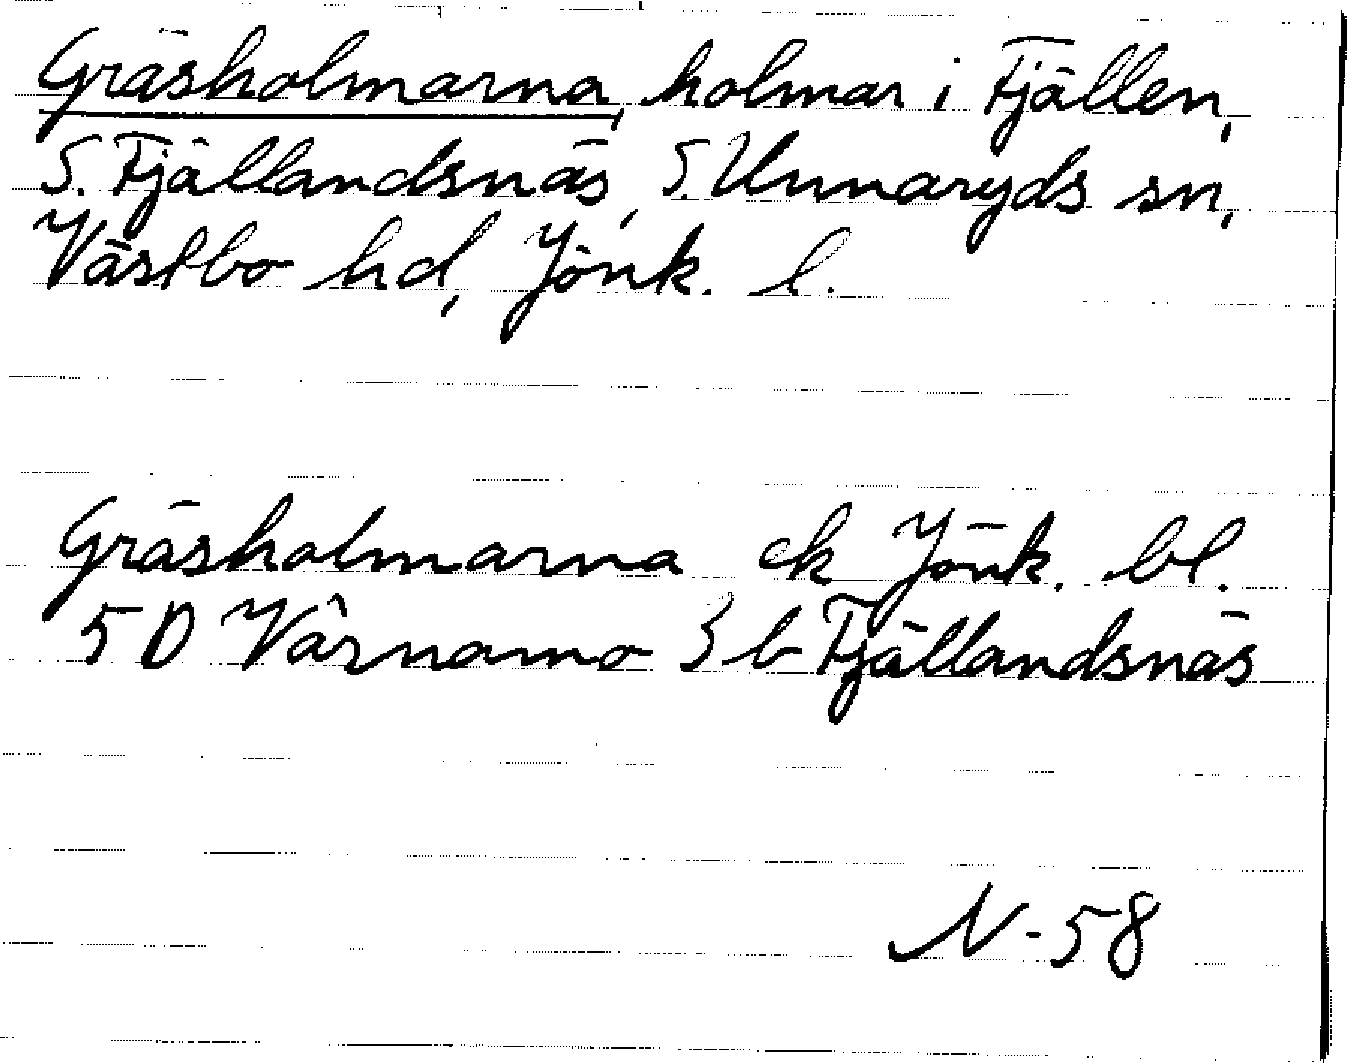 Gräsholmarna, holmar i Fjällen,
S. Fjällandsnäs, S. Unnaryds sn,
Västbo hd, Jönk. l.
Gräsholmarna ek Jönk. bl.
5 D Värnamo 3 b Fjällandsnäs
N-58